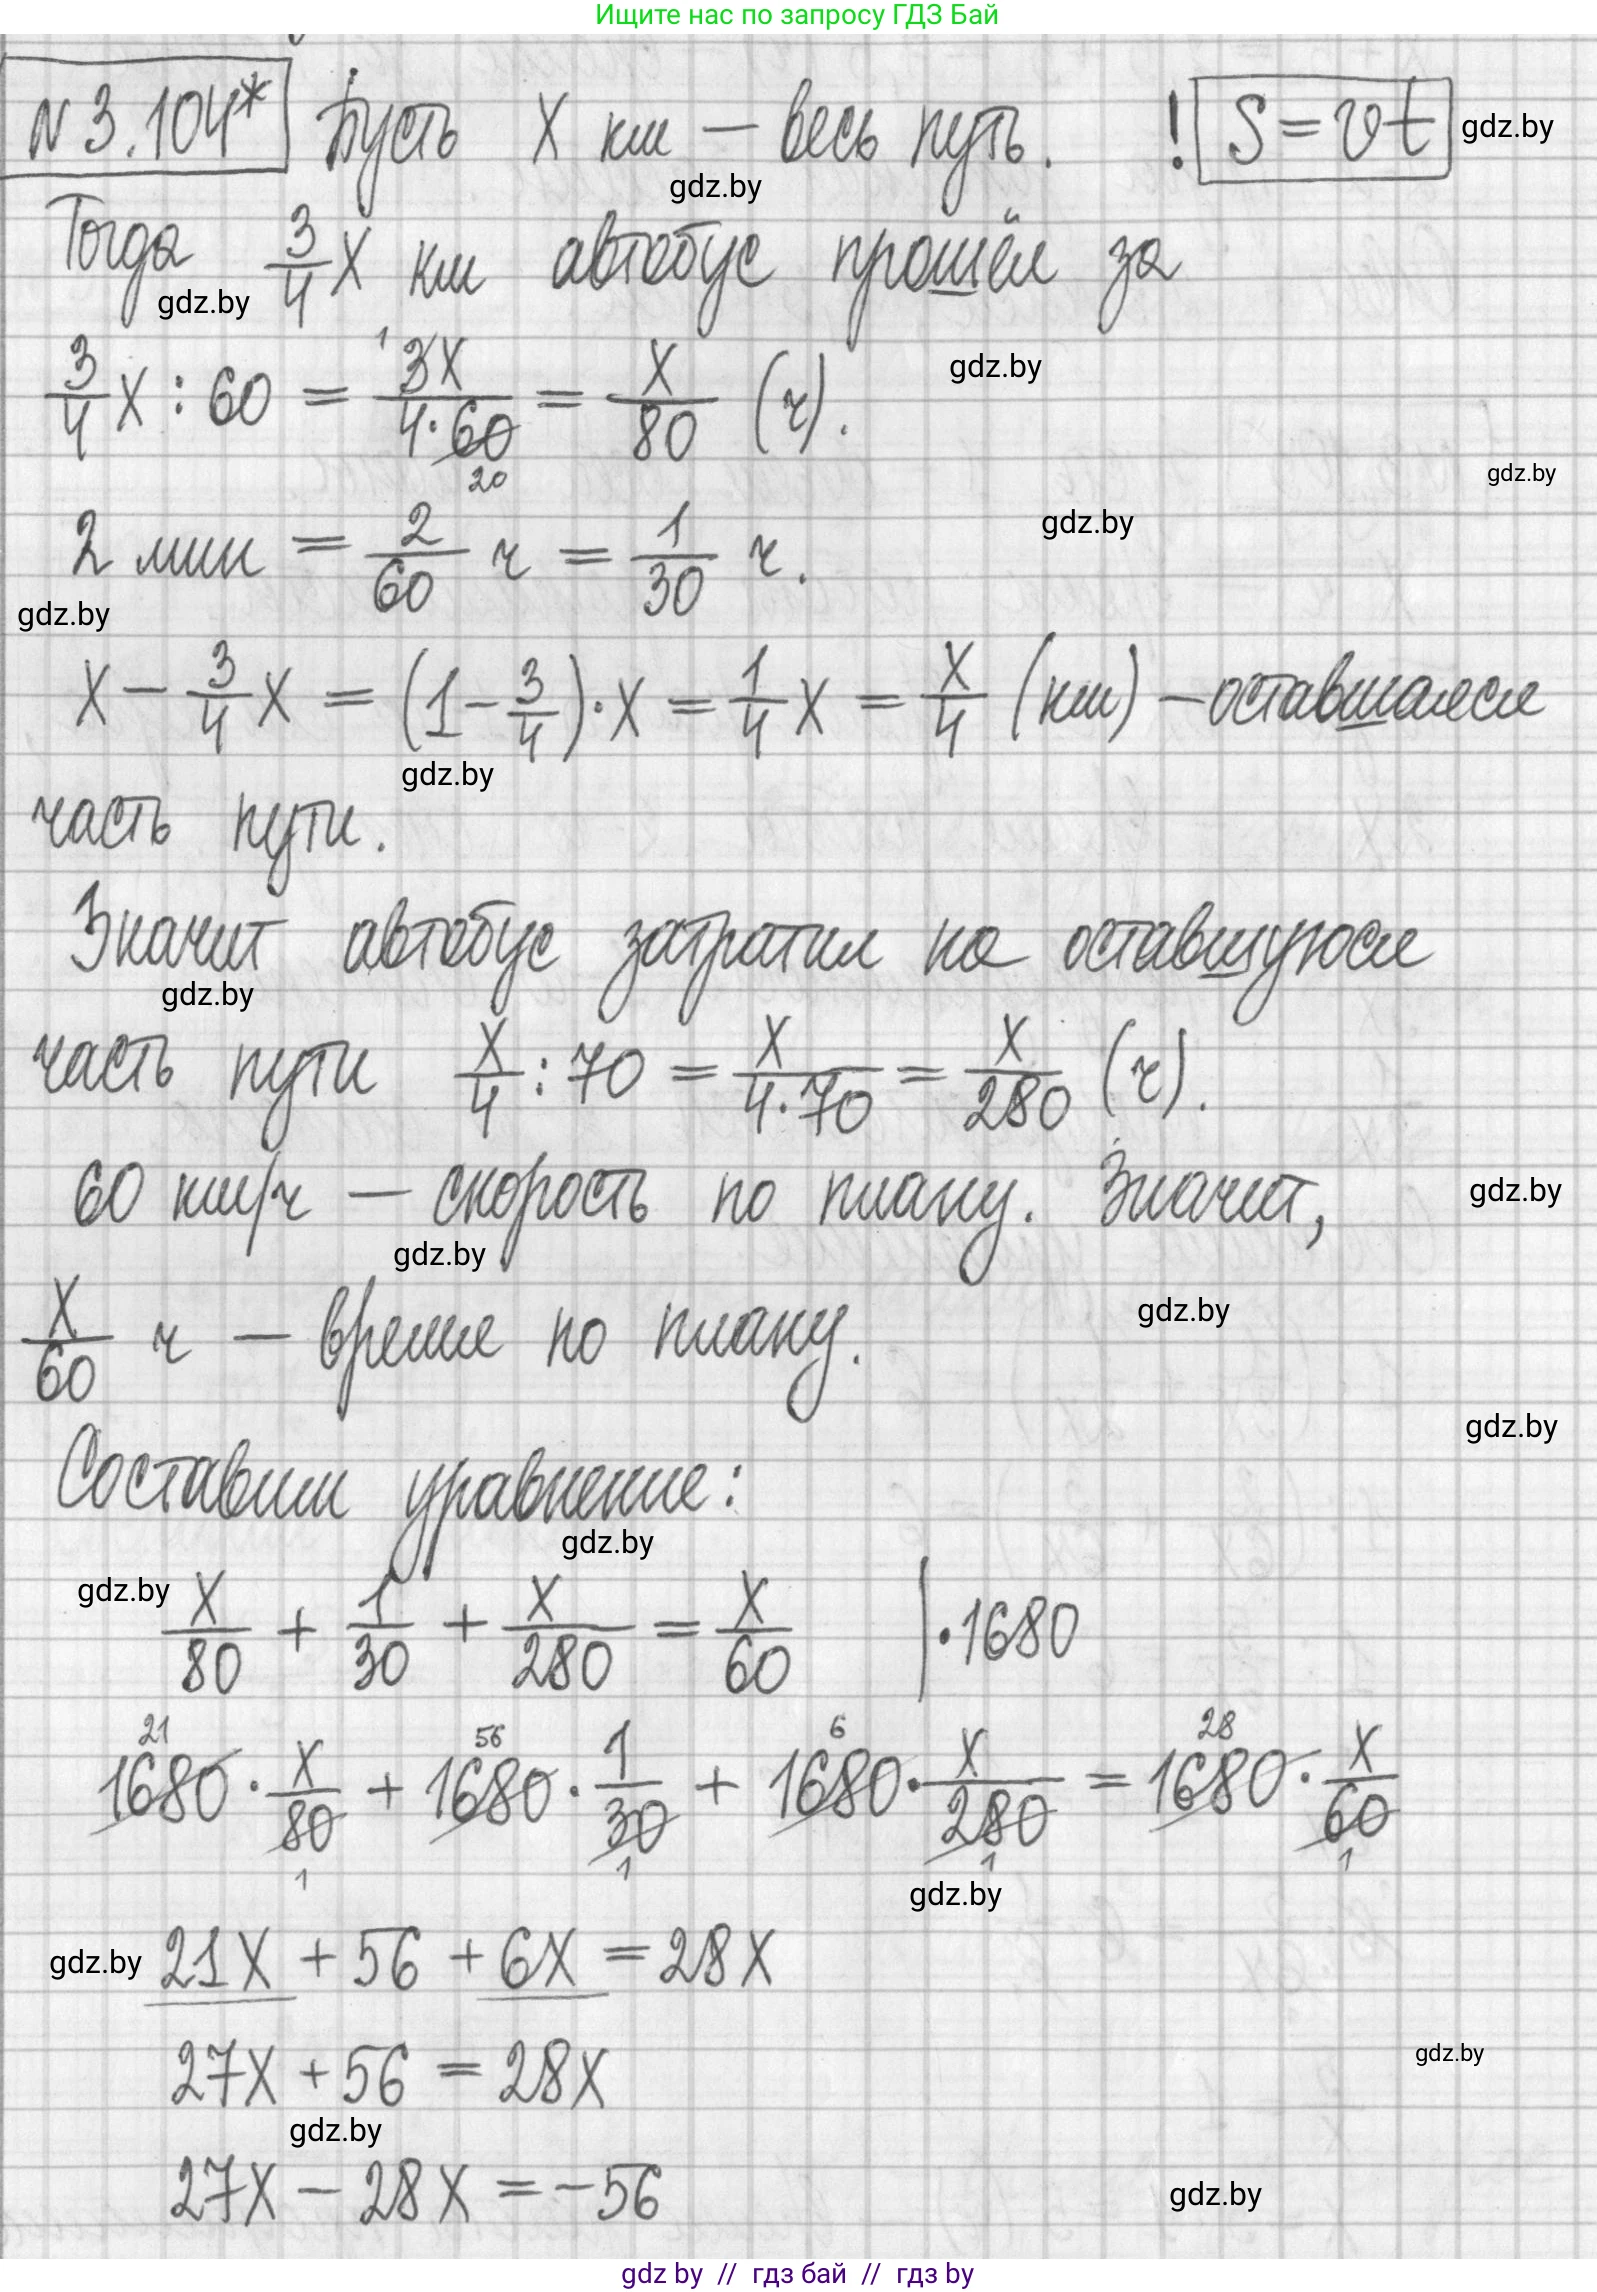 Ищите нас по запросу ГДЗ Бай
N 3.104* Пусть X км — весь путь. ! S = vt gdz.by
gdz.by
Тогда 3/4 X км автобус прошёл за
gdz.by
3/4 X : 60 = 3X/(4·60) = X/80 (ч).
1
20
gdz.by
gdz.by
gdz.by
2 мин = 2/60 ч = 1/30 ч.
gdz.by
X − 3/4 X = (1 − 3/4)·X = 1/4 X = X/4 (км) — оставшаяся
gdz.by
часть пути.
Значит автобус затратил на оставшуюся
gdz.by
часть пути X/4 : 70 = X/(4·70) = X/280 (ч).
60 км/ч — скорость по плану. Значит, gdz.by
gdz.by
gdz.by
X/60 ч — время по плану.
gdz.by
Составим уравнение:
gdz.by
gdz.by
X/80 + 1/30 + X/280 = X/60 | ·1680
21 56 6 28
1680 · X/80 + 1680 · 1/30 + 1680 · X/280 = 1680 · X/60
1 1 1 1
gdz.by
gdz.by 21X + 56 + 6X = 28X
27X + 56 = 28X
gdz.by
gdz.by
27X − 28X = −56
gdz.by
gdz by // гдз бай // гдз by